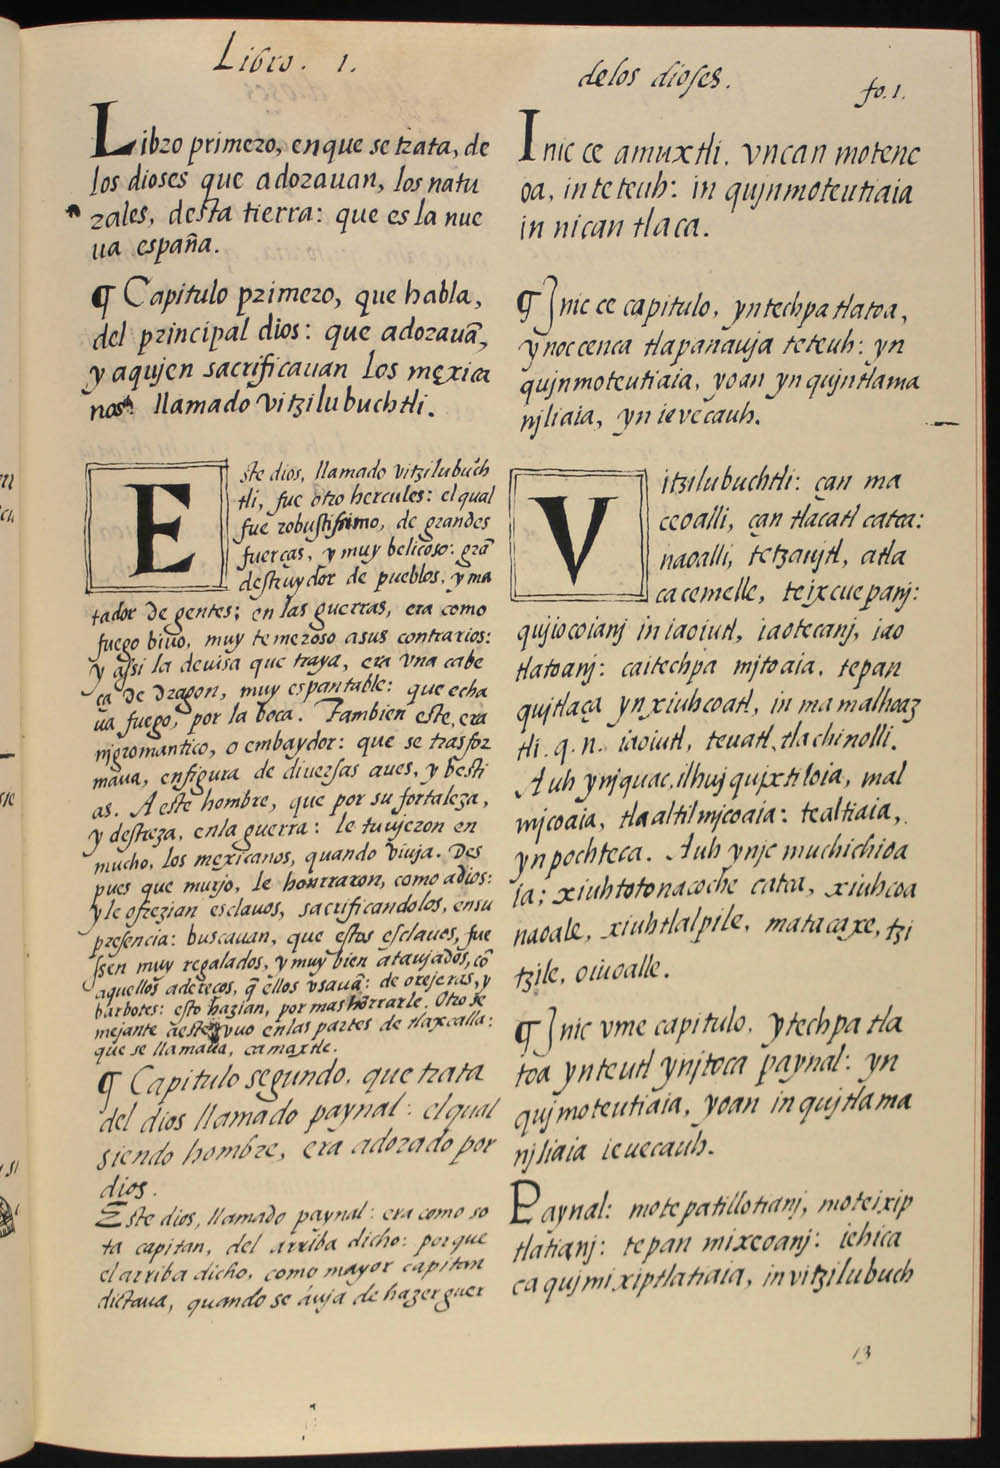 Libro. 1.
de los dioses.
fo. 1.
Libro primero, en que se trata, de
los dioses que adorauan, los natu
rales, desta tierra: que es la nue
ua españa.
¶ Capitulo primero, que habla,
del principal dios: que adorauā,
y aqujen sacrificauan los mexica
nos: llamado vitzilubuchtli.
Este dios, llamado vitzilubuch
tli, fue otro hercules: el qual
fue robustissimo, de grandes
fuerças, y muy belicoso: grā
destruydor de pueblos, y ma
tador de gentes; en las guerras, era como
fuego biuo, muy temeroso asus contrarios:
y assi la deuisa que traya, era vna cabe
ça de dragon, muy espantable: que echa
ua fuego, por la boca. Tambien este, era
njgromantico, o embaydor: que se trasfor
maua, en figura de diuersas aues, y besti
as. A este hombre, que por su fortaleza,
y destreza, en la guerra: le tuujeron en
mucho, los mexicanos, quando viuja. Des
pues que murjo, le honrraron, como adios:
y le ofrezian esclauos, sacrificandolos, en su
presencia: buscauan, que estos esclauos, fue
ssen muy regalados, y muy bien ataujados, cō
aquellos adereços, q̄ ellos vsauā: de orejeras, y
barbotes: esto hazian, por mas honrrarle. Otro se
mejante aeste, vuo en las partes de tlaxcalla:
que se llamaua, camaxtle.
¶ Capitulo segundo, que trata
del dios llamado paynal: el qual
siendo hombre, era adorado por
dios.
Este dios, llamado paynal: era como so
ta capitan, del arriba dicho: porque
el arriba dicho, como mayor capitan
dictaua, quando se auja de hazer guer
Inic ce amuxtli. vncan motene
oa, in teteuh: in qujnmoteutiaia
in nican tlaca.
¶ Jnic ce capitulo, yntechpa tlatoa,
ynoccenca tlapanauja teteuh: yn
qujnmoteutiaia, yoan yn qujntlama
njliaia, yn ievecauh.
Vitzilubuchtli: çan ma
ceoalli, çan tlacatl catca:
naoalli, tetzaujtl, atla
cacemelle, teixcuepanj:
qujiocoianj in iaoiutl, iaotecanj, iao
tlatoanj: ca itechpa mjtoaia, tepan
qujtlaça yn xiuhcoatl, in mamalhoaz
tli. q. n. iaoiutl, teuatl, tlachinolli.
Auh ynjquac, ilhuj qujxtiloia, mal
mjcoaia, tlaaltilmjcoaia: tealtiaia,
yn pochteca. Auh ynjc muchichioa
ia; xiuhtotonacoche catca, xiuhcoa
naoale, xiuhtlalpile, matacaxe, tzi
tzile, oiuoalle.
¶ Jnic vme capitulo, ytechpa tla
toa ynteutl ynjtoca paynal: yn
qujmoteutiaia, yoan in qujtlama
njliaia ieuecauh.
Paynal: motepatillotianj, moteixip
tlatianj: tepan mixeoanj: iehica
ca qujmixiptlatiaia, in vitzilubuch
13